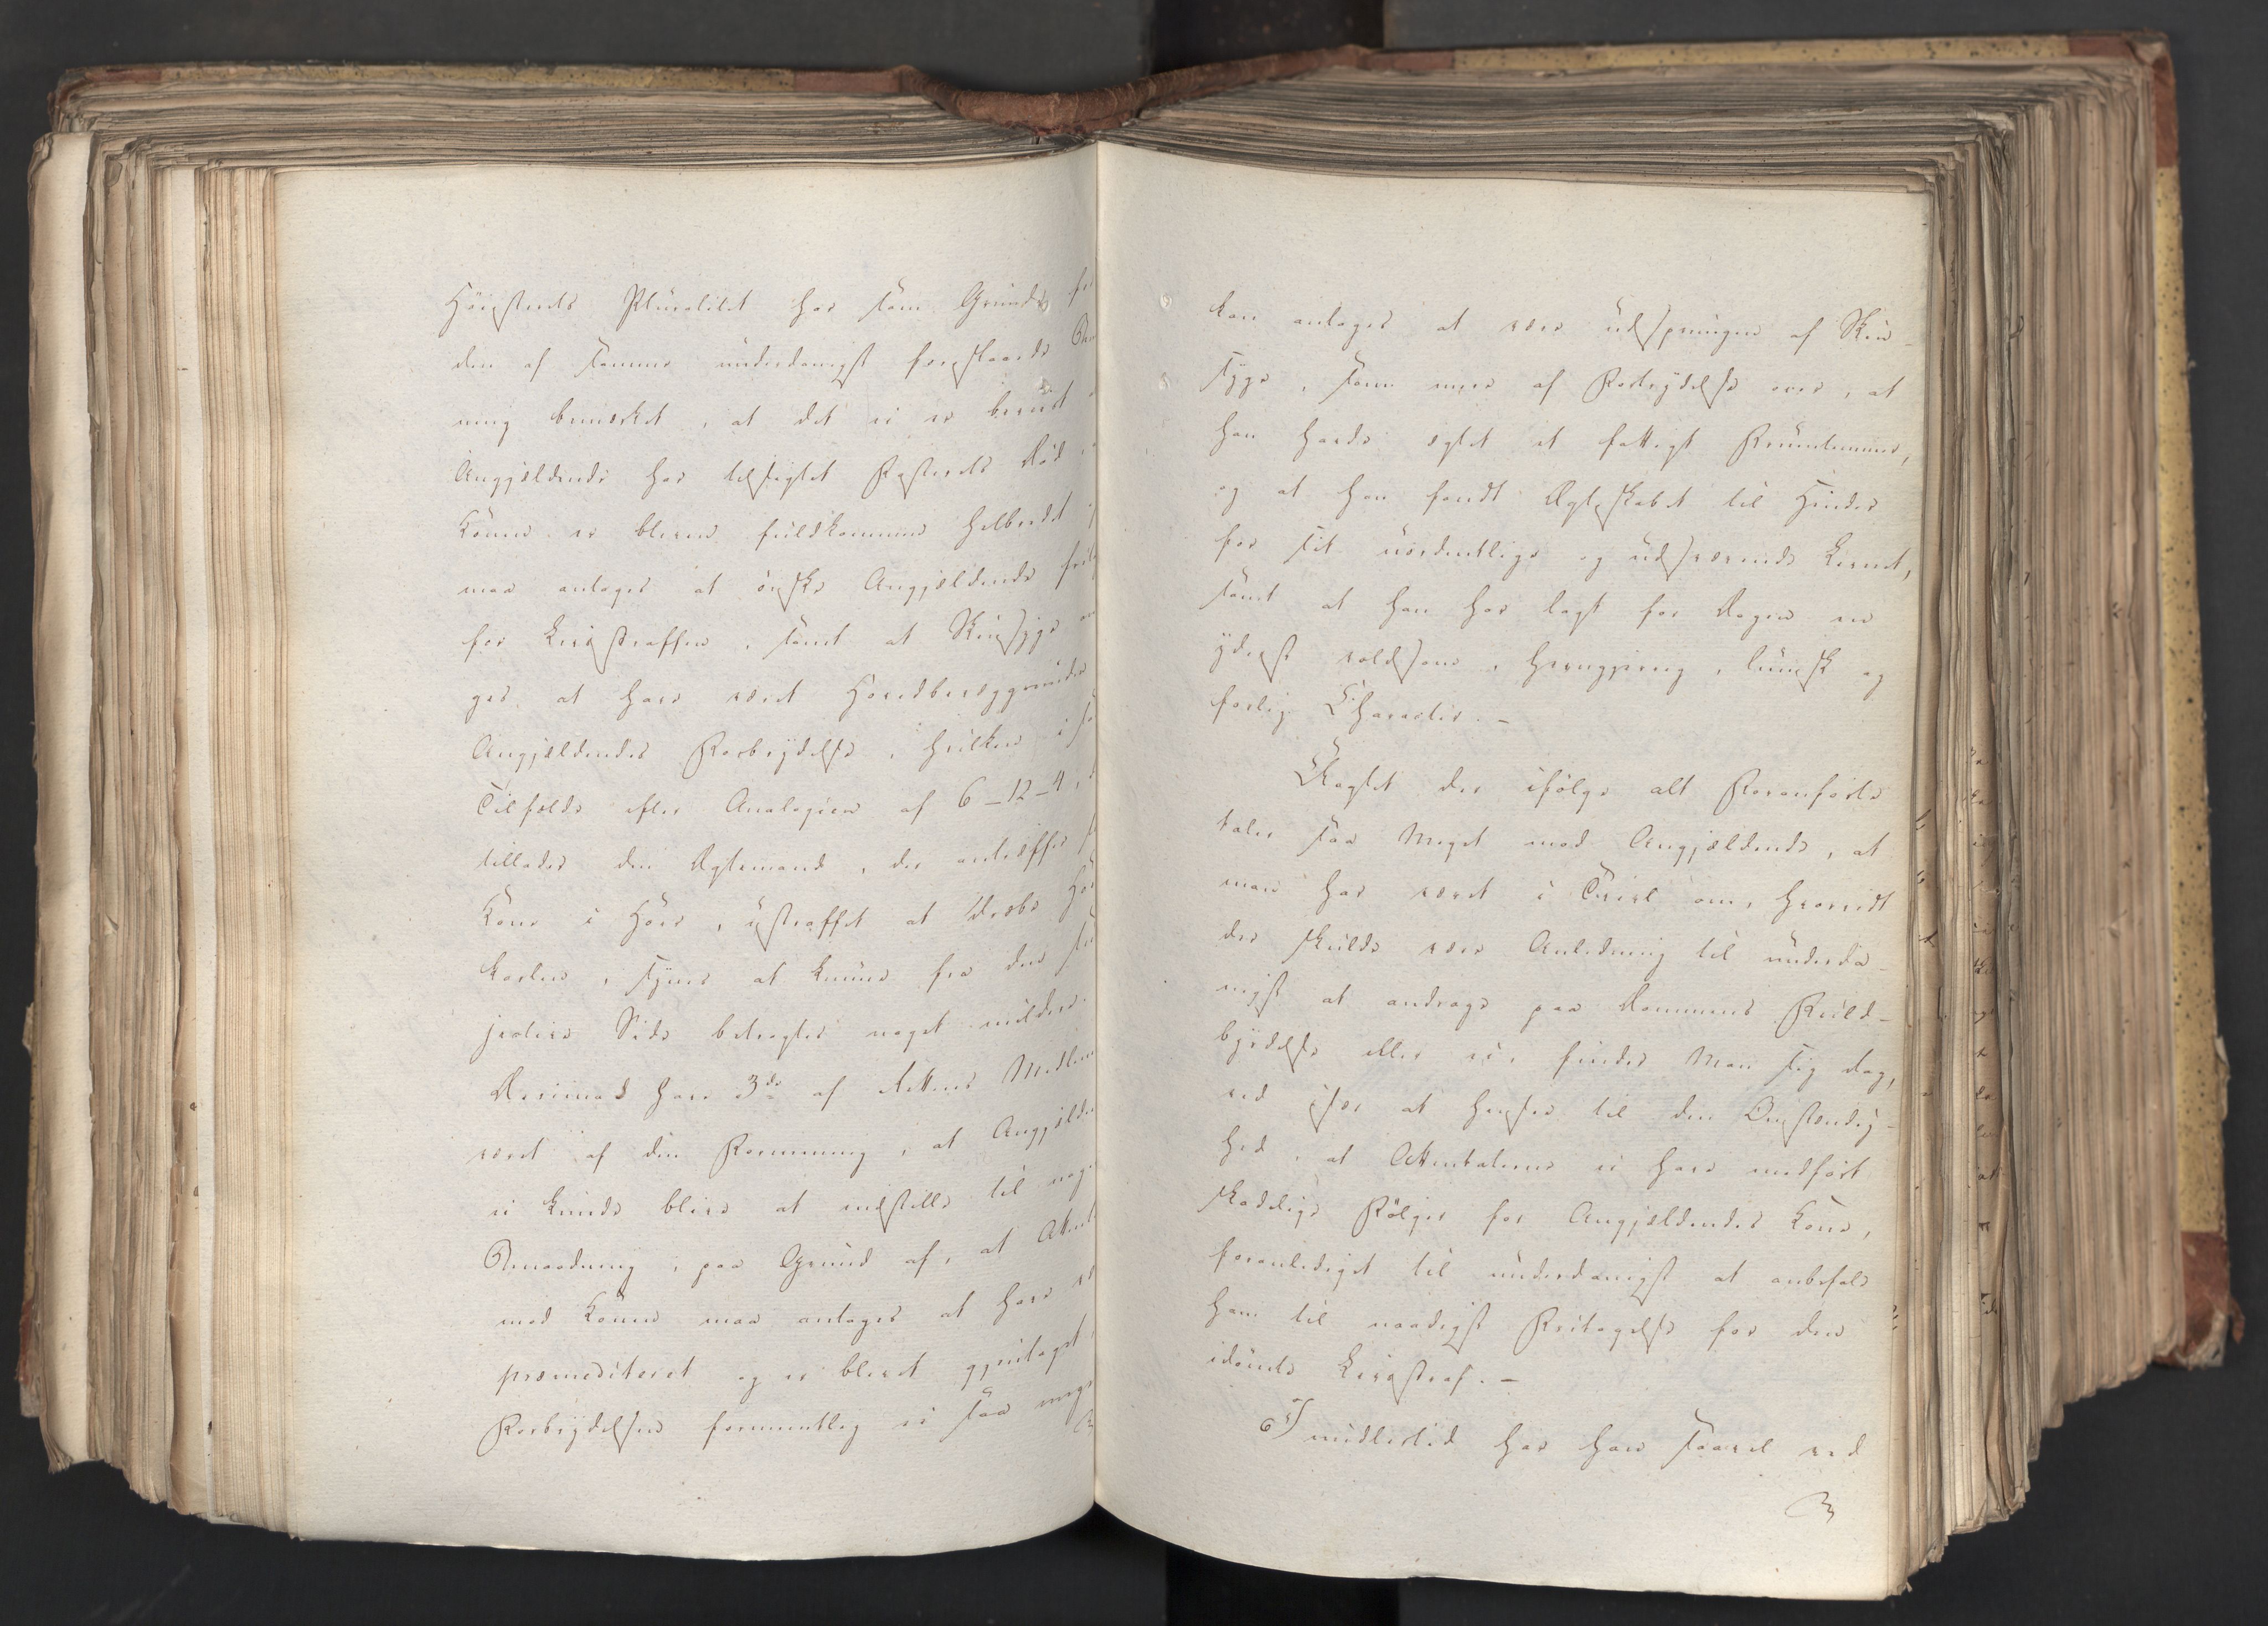 Høiesterets Pluralitet har som Grunde for
den af samme underdanigst foreslaaede
ning bemærket, at det ei er beviist
Angjældende har tilsigtet Hustruens Død,
Konen er bleven fuldkommen helbredet
maa antages at ønske Angjældende fritag
for Livsstraffen, samt at Skinsyge an
ges at have været Hovedbevæggrunden
Angjældendes Forbrydelse, hvilken i
Tilfælde efter Analogien af 6-12-4,
tillader den Ægtemand, der antræffer
Kone i Hoer, ustraffet at dræbe Hoer
karlen, synes at kunne fra den
jective Side betragtes noget mildere.
Derimod have 3de af Rettens Medlem
været af den Formening, at Angjælde
ei kunde blive at indstille til nog
Benaadning, paa Grund af, at Attent
mod Konen maa antages at have
præmediteret og er blevet gjentaget,
Forbrydelsen formeentlig ei saa meg
kan antages at være udsprungen af Skin-
syge, som mere af Fortrydelse over, at
han havde ægtet et fattigt Fruentimmer,
og at han fandt Ægteskabet til Hinder
for sit uordentlige og udsvævende Levnet,
samt at han har lagt for Dagen en
yderst voldsom, hevngjerrig, lumsk og
farlig Character. -
Uagtet der ifølge alt Foranførte
taler saa Meget mod Angjældende, at
man har været i Tvivl om, hvorvidt
der skulde være Anledning til underda-
nigst at andrage paa Dommens Fuld-
byrdelse eller ei, finder Man sig dog,
ved især at hensee til den Omstændig-
hed, at Attentaterne ei have medført
skadelige Følger for Angjældendes Kone,
foranlediget til underdanigst at anbefale
ham til naadigst Fritagelse for den
idømte Livsstraf. -
Imidlertid har han saavel ved